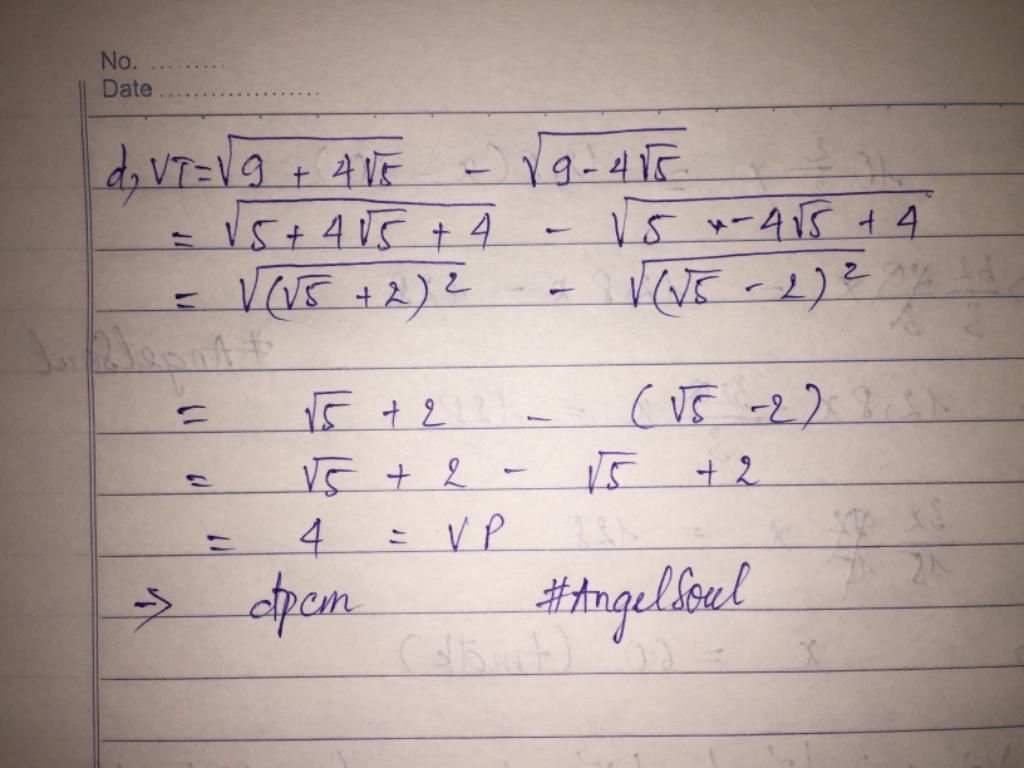 No. .........
Date ...................
d, VT = √(9 + 4√5) - √(9 - 4√5)
= √(5 + 4√5 + 4) - √(5 - 4√5 + 4)
= √((√5 + 2)²) - √((√5 - 2)²)
= √5 + 2 - (√5 - 2)
= √5 + 2 - √5 + 2
= 4 = VP
=> đpcm #AngelSoul